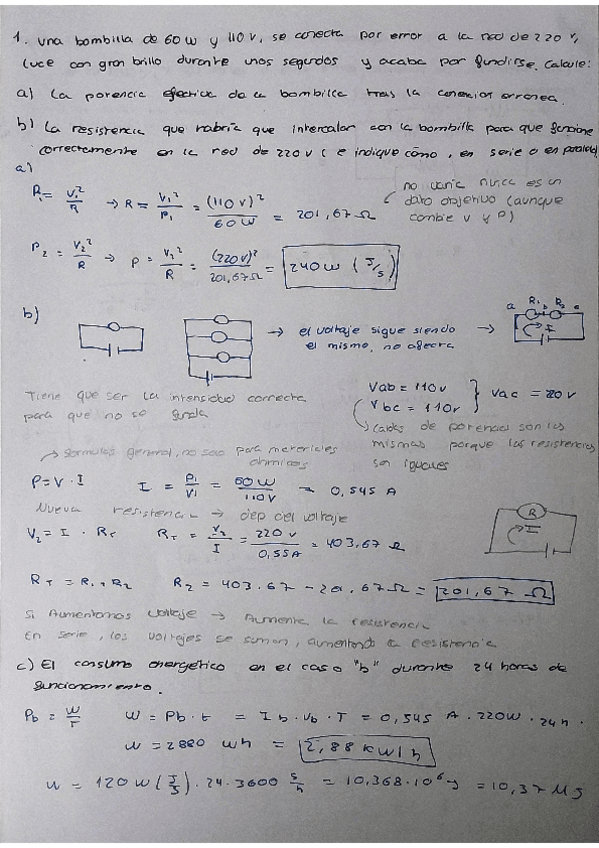 1. Una bombilla de 60 W y 110 V, se conecta por error a la red de 220 V,
luce con gran brillo durante unos segundos y acaba por fundirse. Calcule:
a) La potencia efectiva de la bombilla tras la conexión errónea.
b) La resistencia que habría que intercalar con la bombilla para que funcione
correctamente en la red de 220 V (e indique cómo, en serie o en paralelo)
a)
P₁ = V₁²/R → R = V₁²/P₁ = (110 V)²/60 W = 201,67 Ω
no varía nunca es un
dato objetivo (aunque
cambie V y P)
P₂ = V₂²/R → P = V₂²/R = (220V)²/201,67Ω = 240 W (J/s)
b)
→ el voltaje sigue siendo
el mismo, no afecta →
a R₁ b R₂ c
I
Tiene que ser la intensidad correcta
para que no se funda
Vab = 110 V
Vbc = 110 V } Vac = 220 V
Caídas de potencia son las
mismas porque las resistencias
son iguales
→ formula general, no solo para materiales
óhmicos
P = V · I I = P₁/V₁ = 60 W/110 V = 0,545 A
Nueva resistencia → dep del voltaje
R
I
V₂ = I · R_T R_T = V₂/I = 220 V/0,55A = 403,67 Ω
R_T = R₁ + R₂ R₂ = 403,67 − 201,67 Ω = 201,67 Ω
Si Aumentamos voltaje → Aumenta la resistencia
En serie, los voltajes se suman, aumentando la resistencia
c) El consumo energético en el caso "b" durante 24 horas de
funcionamiento.
Pb = W/T W = Pb · t = Ib · Vb · T = 0,545 A · 220W · 24 h.
W = 2880 Wh = 2,88 kW/h
W = 120 W (J/s) · 24 · 3600 s/h = 10,368 · 10⁶ J = 10,37 MJ